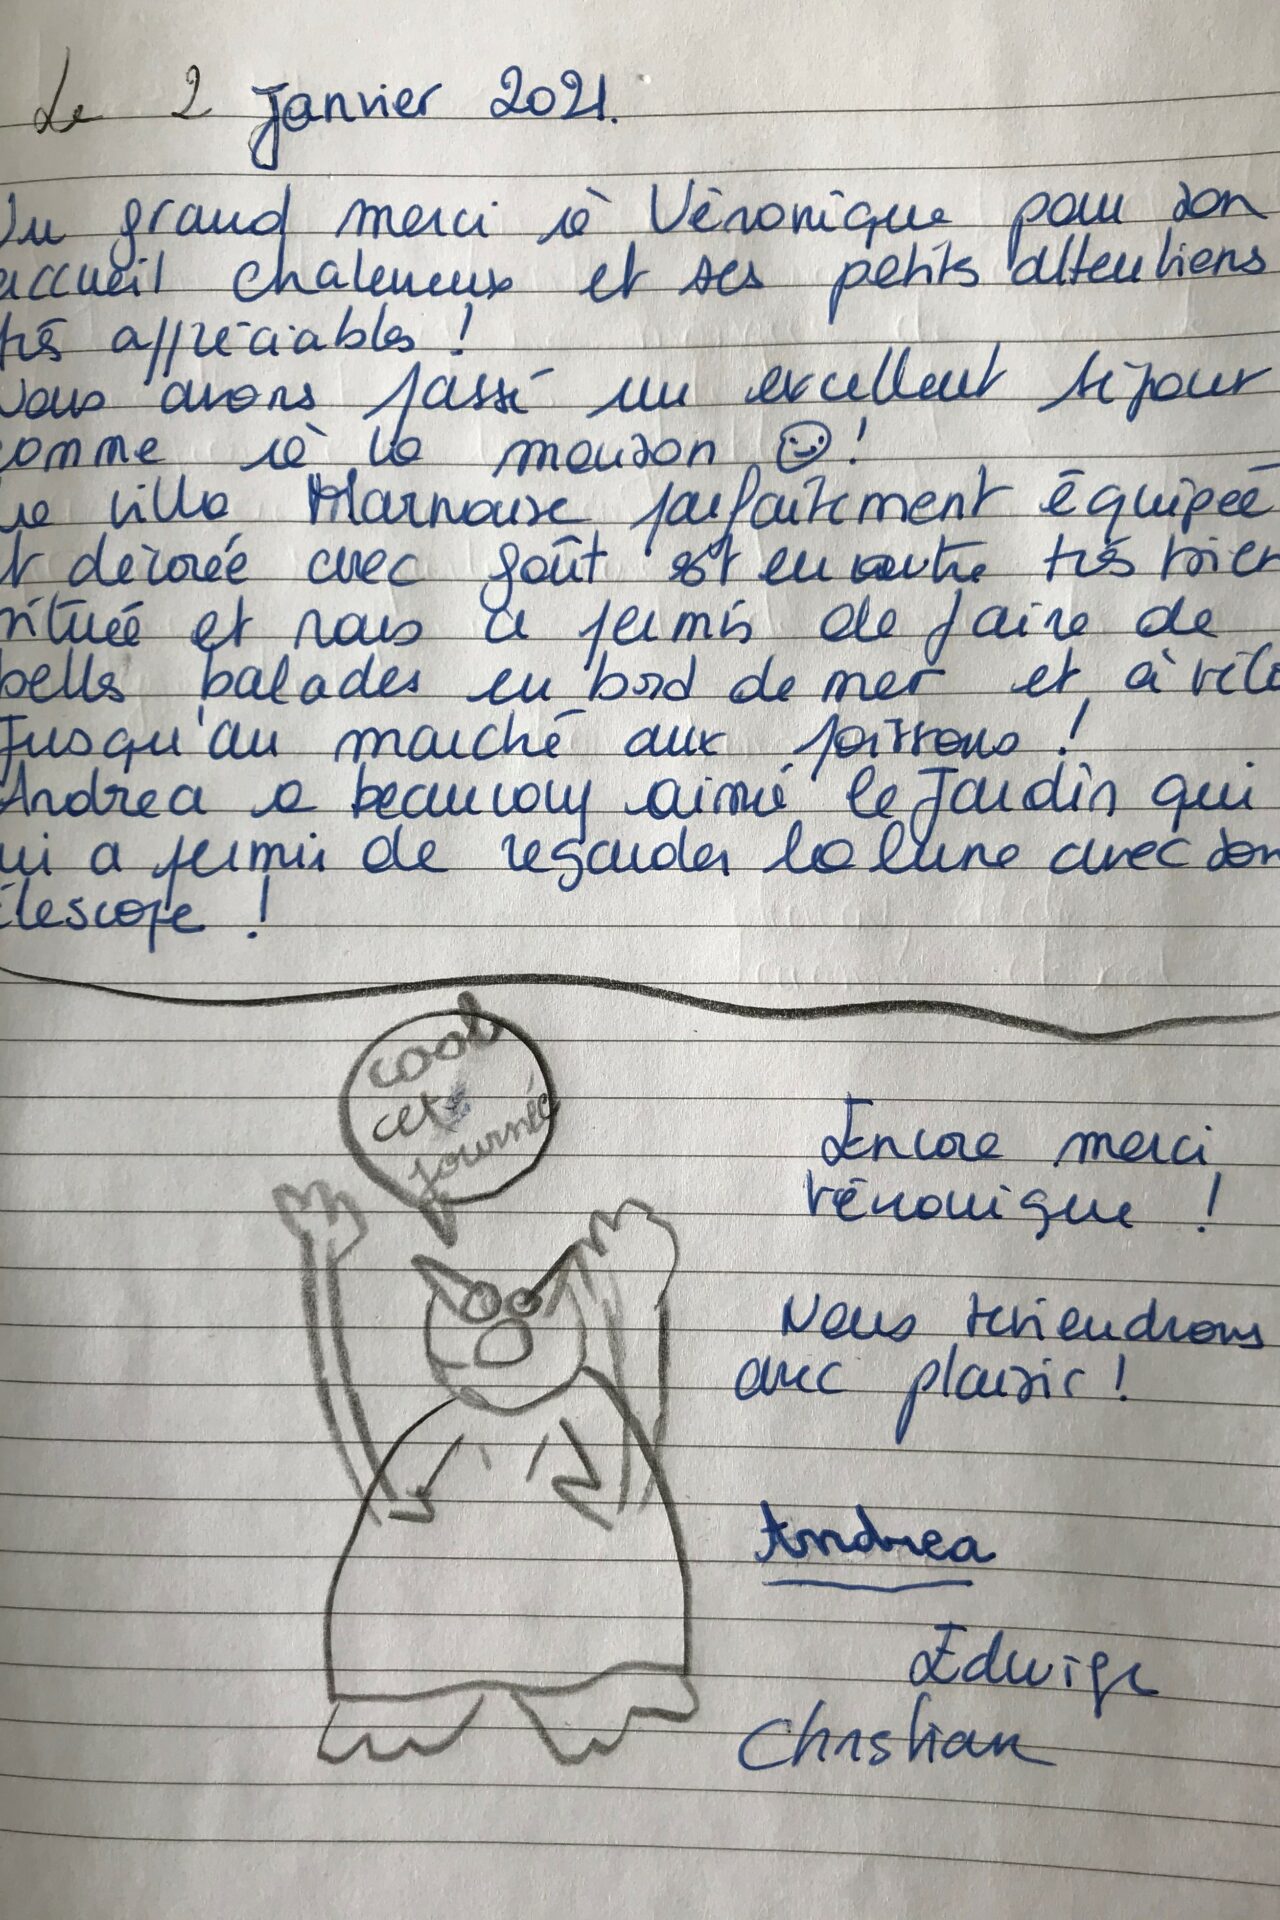 Le 2 Janvier 2021.
Un grand merci à Véronique pour son
accueil chaleureux et ses petits attentions
très appréciables !
Nous avons passé un excellent séjour
comme à la maison !
La villa Marnouse parfaitement équipée
et décorée avec goût est en outre très bien
située et nous a permis de faire de
bells balades en bord de mer et à vélo
Jusqu'au marché aux poissons !
Andrea a beaucoup aimé le Jardin qui
lui a permis de regarder la lune avec son
télescope !
cool
cet
journée
Encore merci
Véronique !
Nous reviendrons
avec plaisir !
Andrea
Edwige
Christian